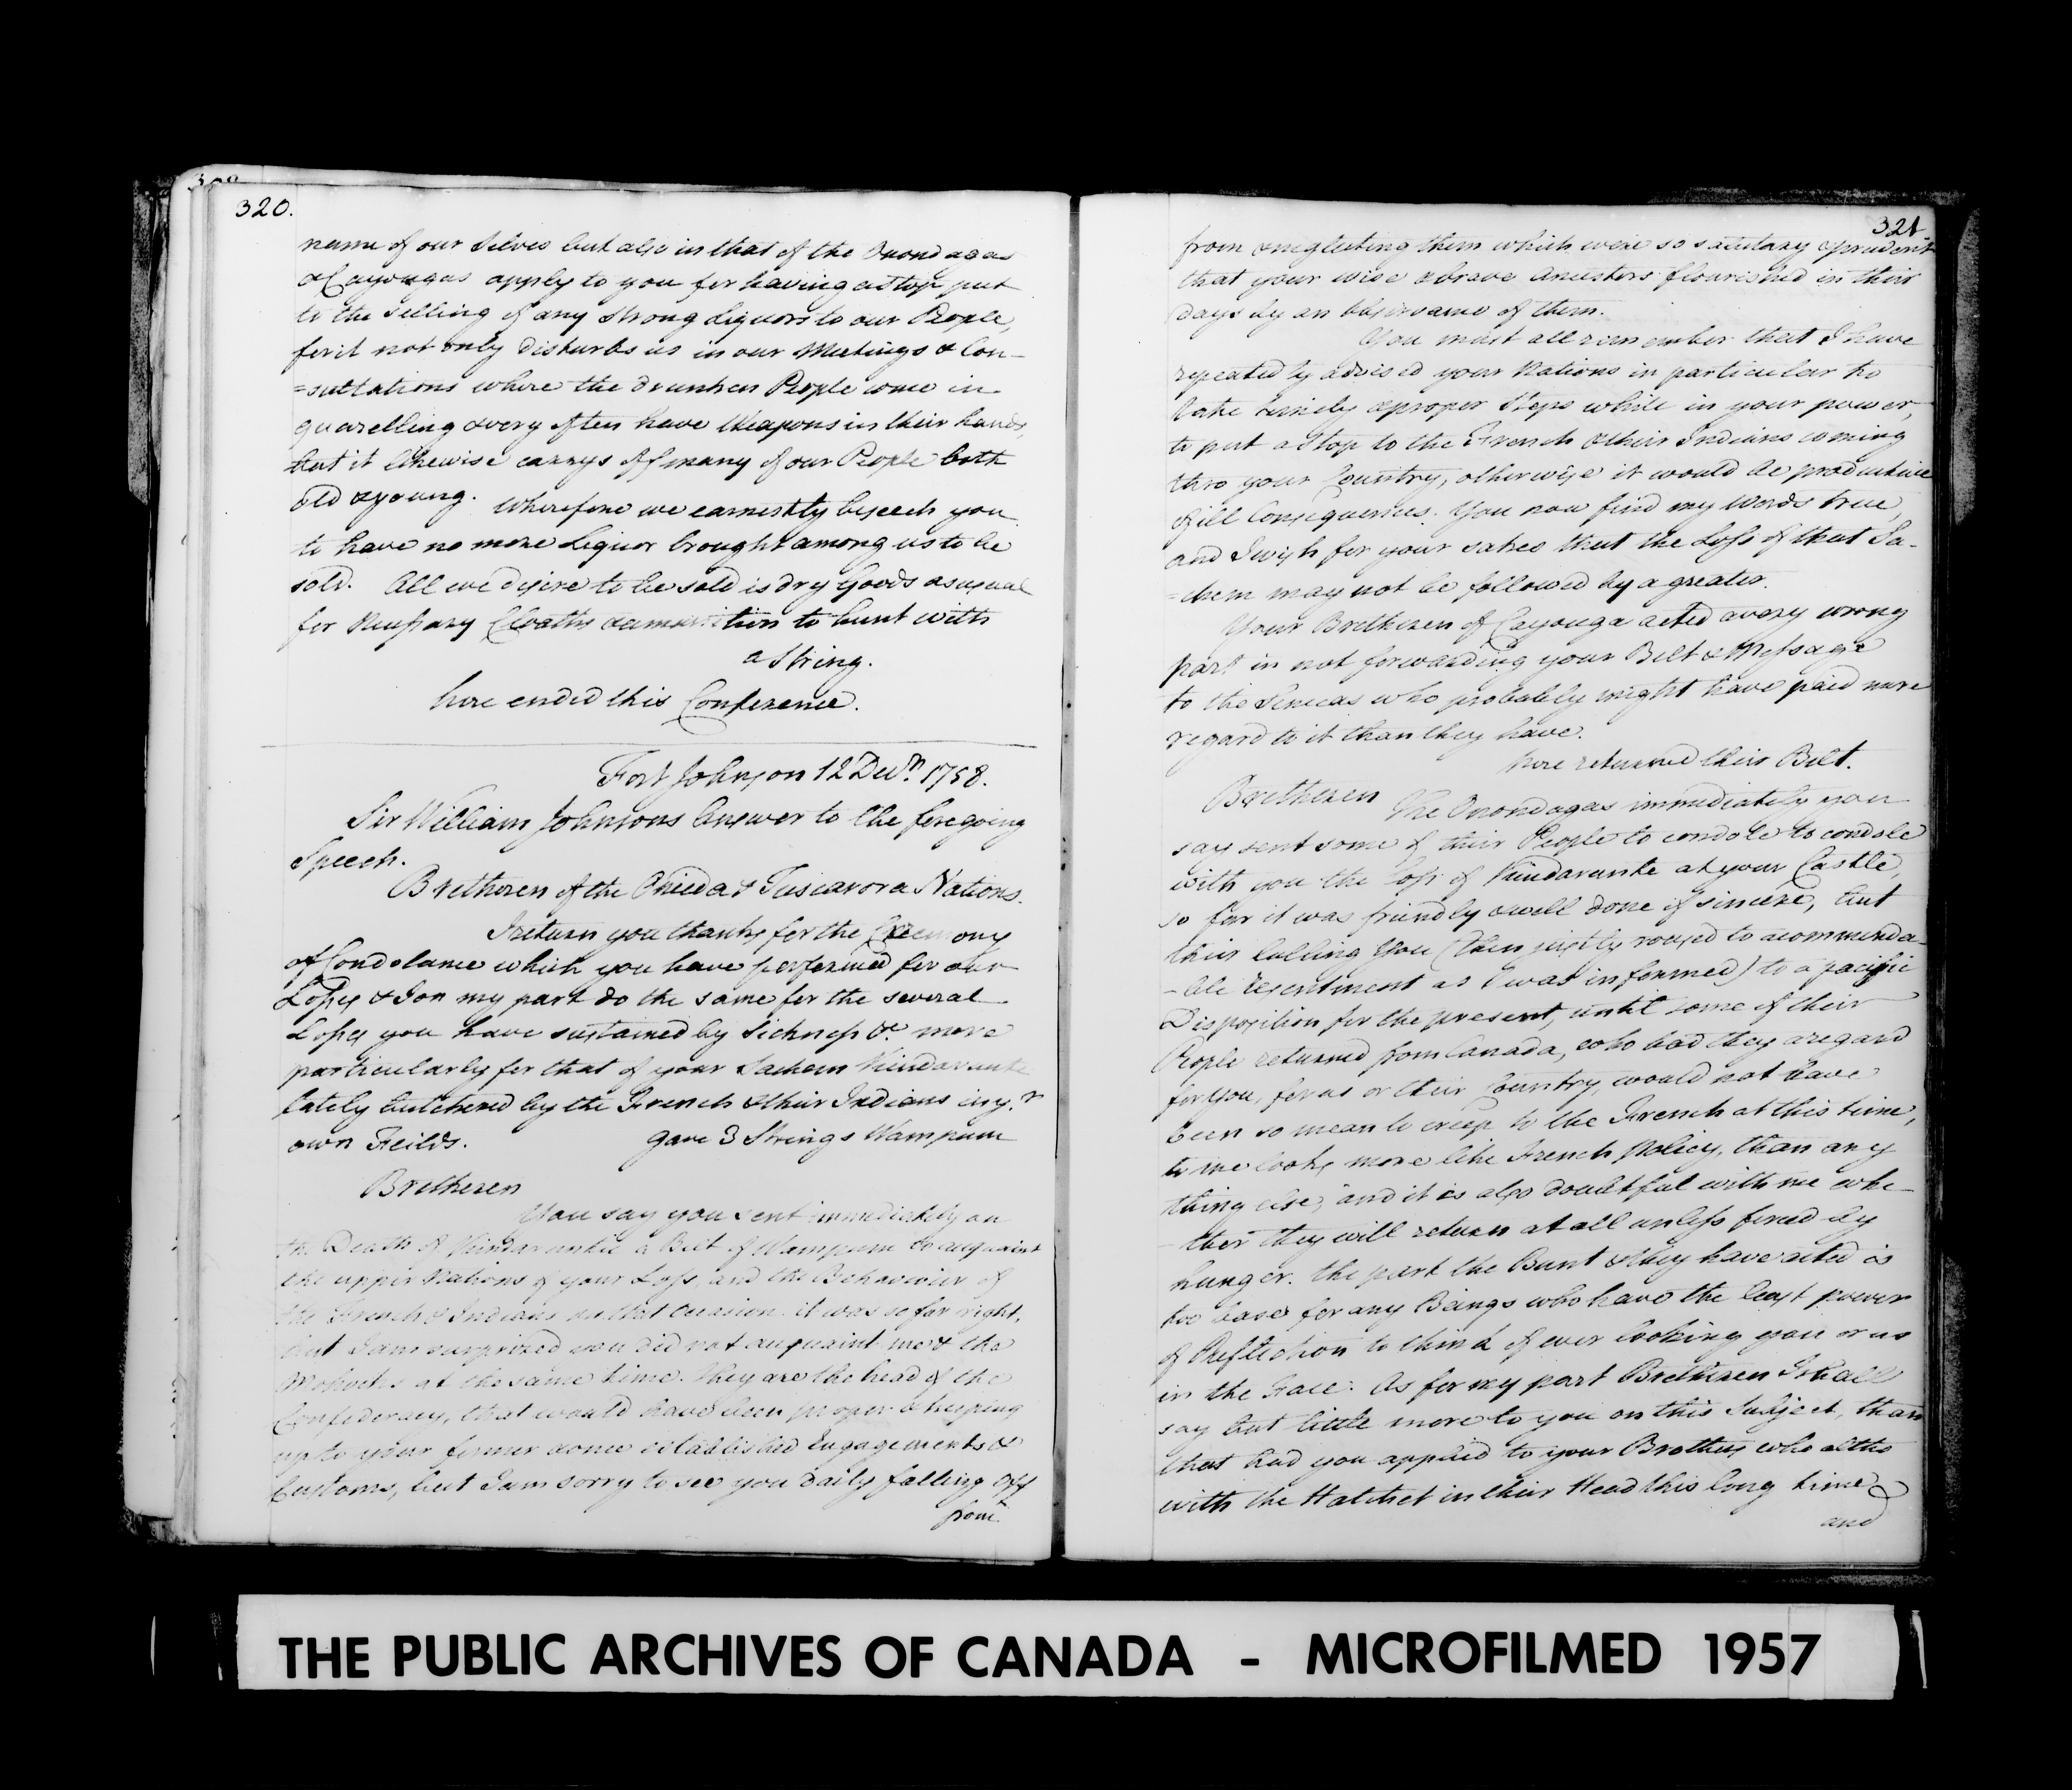 320.
name of our Selves but also in that of the Onondagas
& Cayougas apply to you for having a Stop put
to the Selling of any Strong Liquors to our People,
for it not only disturbs us in our Meetings & Con-
=sultations where the drunken People come in
quarelling & very often have Weapons in their hands,
but it likewise carrys off many of our People both
old & young. Wherefore we earnestly beseech you
to have no more Liquor brought among us to be
sold. All we desire to be sold is dry Goods as usual
for Necessary Cloaths & amunition to hunt with
a String.
here ended this Conference.
Fort Johnson 12 Decr. 1758.
Sir William Johnsons Answer to the foregoing
Speech.
Bretheren of the Oneida & Tuscarora Nations.
I return you thanks for the Ceremony
of Condolance which you have performed for our
Losses & I on my part do the same for the several
Losses you have sustained by Sickness &c. more
particularly for that of your Sachem Kindarunte
lately butchered by the French & their Indians in yr.
own Feilds. gave 3 Strings Wampum
Bretheren
You say you sent immediately on
the Death of Kindaruntie a Belt of Wampum to acquaint
the upper Nations of your Loss, and the Behaviour of
the French & Indians on that Occasion. it was so far right,
but I am surprized you did not acquaint me & the
Mohocks at the same time. they are the head of the
Confederacy, that would have been proper & keeping
up to your former & once established Engagements &
Customs, but I am sorry to see you daily falling off
from
321
from & neglecting them which were so salutary & prudent
that your wise & brave Ancestors flourished in their
days by an observance of them.
You must all remember that I have
repeatedly advised your Nations in particular to
take timely & proper Steps while in your power,
to put a stop to the French & their Indians coming
thro your Country, otherwise it would be productive
of ill Consequences. You now find my Words true,
and I wish for your sakes that the Loss of that Sa-
=chem may not be followed by a greater.
Your Bretheren of Cayouga acted a very wrong
part in not forwarding your Belt & Message
to the Senecas who probably might have paid more
regard to it than they have.
here returned their Belt.
Bretheren The Onondagas immediately you
say sent some of their People to condole to condole
with you the loss of Kindarunte at your Castle,
so far it was friendly & well done if sincere, but
their lulling You (then justly roused to a commenda-
-ble resentment as I was informed) to a pacific
Disposition for the present, until some of their
People returned from Canada, who had they a regard
for You, for us or their Country, would not have
been so mean to creep to the French at this time,
to me looks more like French Policy, than any
thing else, and it is also doubtful with me whe-
-ther they will return at all unless forced by
hunger. the part the Bunt & they have acted is
too base for any Beings who have the least power
of Reflection to think of ever looking you or us
in the Face. As for my part Bretheren I shall
say but little more to you on this Subject, than
that had you applied to your Brothers who altho
with the Hatchet in their Head this long time
and
THE PUBLIC ARCHIVES OF CANADA - MICROFILMED 1957